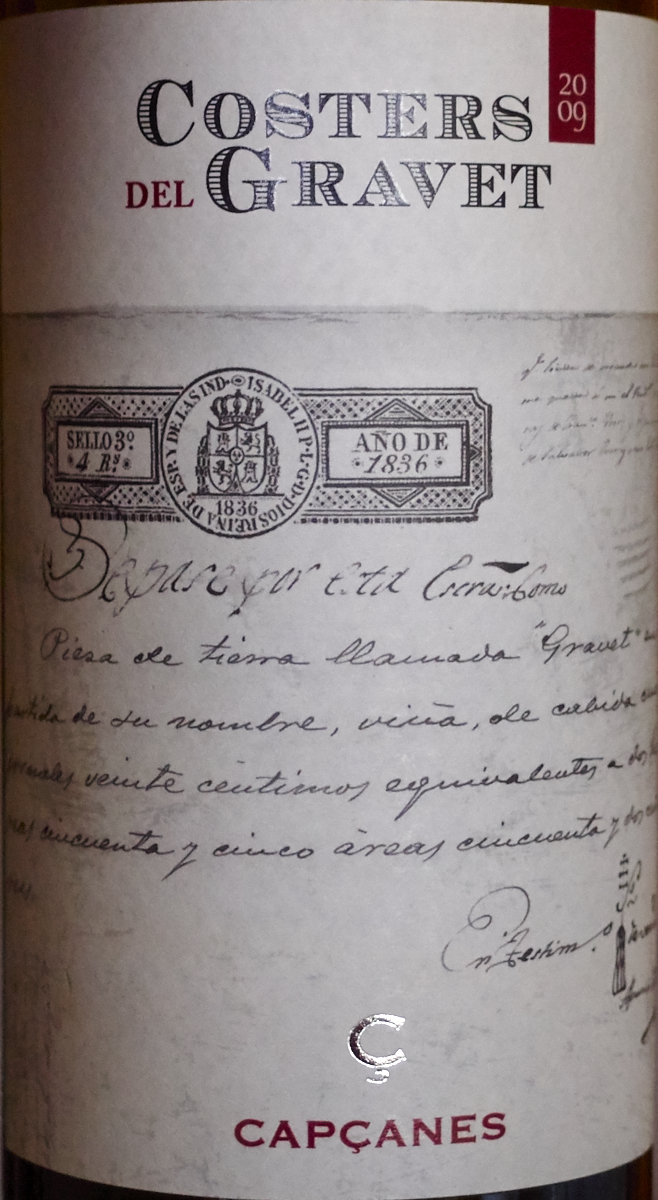 COSTERS
20
09
DEL GRAVET
SELLO 3º
4 Rs
ISABEL II P. L. G. D DIOS REINA DE ESP. Y DE LAS IND.
1836
AÑO DE
1836
Sepase por esta Escra: Como
Pieza de tierra llamada "Gravet"
partida de su nombre, viña, de cabida
jornales veinte céntimos equivalentes a dos
cincuenta y cinco áreas cincuenta y dos
En Testim.º
Ç
CAPÇANES